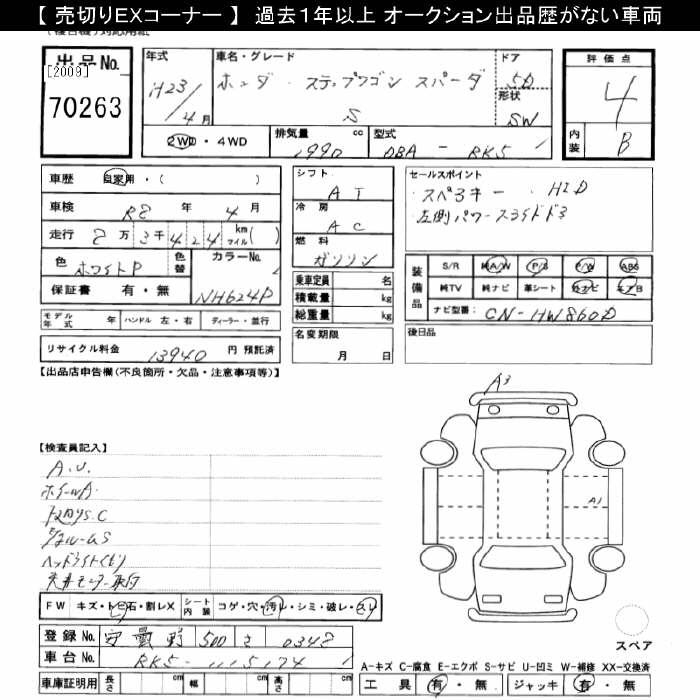 【 売切りEXコーナー 】 過去１年以上 オークション出品歴がない車両
出品No.
[2009]
70263
年式
H23/4月
車名・グレード
ホンダ・ステップワゴン スパーダ
S
ドア
5D
形状
SW
評価点
4
内装
B
2WD・4WD
排気量 cc
1990
型式
DBA - RK5
車歴 自家用・( )
車検 R8 年 4 月
走行 8 万 3 千 4 2 4 km マイル( )
色 ホワイトP 色替 カラーNo.
保証書 有・無 NH624P
シフト
AT
冷房
AC
燃料
ガソリン
乗車定員 名
積載量 kg
総重量 kg
名変期限
月 日
セールスポイント
スペアキー HID
左側パワースライドドア
装備品
S/R 純A/W P/S P/W ABS
純TV 純ナビ 革シート 社ナビ エアB
ナビ型番: CN-HW860D
後日品
モデル年式 年 ハンドル 左・右 ディーラー・並行
リサイクル料金 13940 円 預託済
【出品店申告欄(不良箇所・欠品・注意事項等)】
A3
A1
【検査員記入】
A.U.
ホイールA
ヘッドライト
FW キズ・トビ石・割レX シート内装 コゲ・穴・汚レ・シミ・破レ・スレ
登録No. 安曇野 500 さ 0348
車台No. RK5- 1115174
車庫証明用 長さ cm 幅 cm 高さ cm
スペア
A-キズ C-腐食 E-エクボ S-サビ U-凹ミ W-補修 XX-交換済
工具 有・無 ジャッキ 有・無